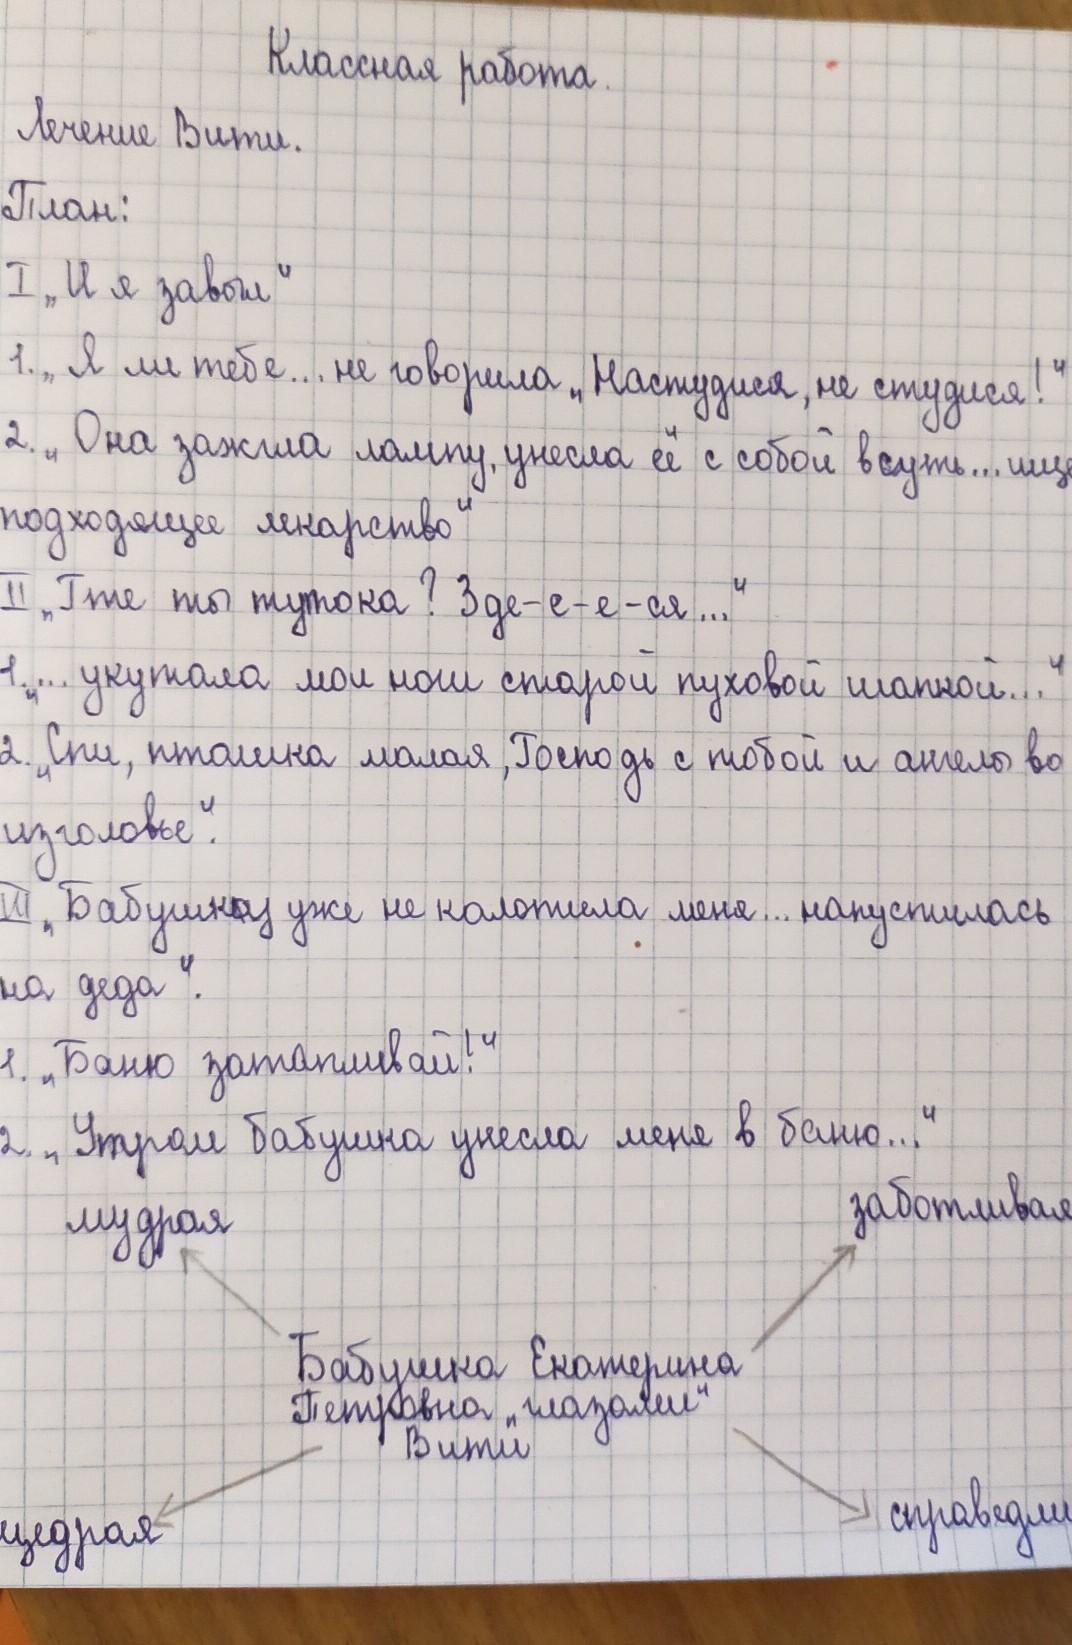 Классная работа.
Лечение Вити.
План:
I „И я завыл“
1. „Я ли тебе... не говорила „Настудися, не студися!“
2. „Она зажгла лампу, унесла её с собой в куть... ище
подходящее лекарство“
II „Гте ты тутока? Зде-е-е-ся...“
1. „... укутала мои ноги старой пуховой шапкой...“
2. „Спи, пташка малая, Господь с тобой и ангелы во
изголовье“.
III „Бабушка уже не колотила меня... напустилась
на деда“.
1. „Баню затапливай!“
2. „Утром бабушка унесла меня в баню...“
мудрая заботливая
Бабушка Екатерина
Петровна „глазами“
Вити
щедрая справедли